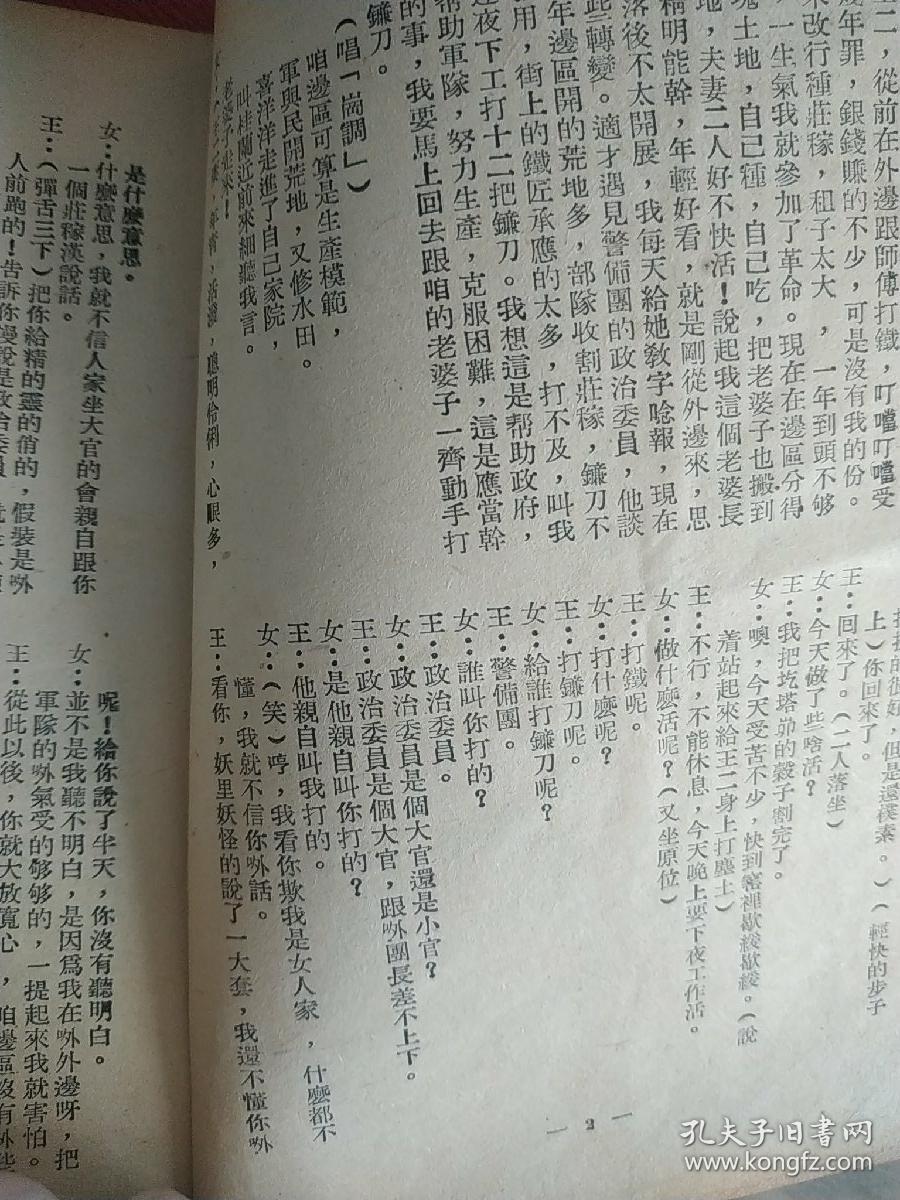 王二，從前在外邊跟師傅打鐵，叮噹叮噹受
幾年罪，銀錢賺的不少，可是沒有我的份。
來改行種莊稼，租子太大，一年到頭不够
一生氣我就參加了革命。現在在邊區分得
塊土地，自己種，自己吃，把老婆子也搬到
地，夫妻二人好不快活！說起我這個老婆長
精明能幹，年輕好看，就是剛從外邊來，思
落後不太開展，我每天給她教字唸報，現在
些轉變。適才遇見警備團的政治委員，他談
年邊區開的荒地多，部隊收割莊稼，鐮刀不
用，街上的鐵匠承應的太多，打不及，叫我
連夜下工打十二把鐮刀。我想這是帮助政府，
帮助軍隊，努力生產，克服困難，這是應當幹
的事，我要馬上回去跟咱的老婆子一齊動手打
鐮刀。
（唱「崗調」）
咱邊區可算是生產模範，
軍與民開荒地，又修水田。
喜洋洋走進了自己家院，
叫桂蘭近前來細聽我言。
老婆子走來！
活潑，聰明伶俐，心眼多，
的很好，但是還樸素。）（輕快的步子
上）你回來了。
王：回來了。（二人落坐）
女：今天做了些啥活？
王：我把圪塔峁的穀子割完了。
女：噢，今天受苦不少，快到窰裡歇綏歇綏。（說
着站起來給王二身上打塵土）
王：不行，不能休息，今天晚上要下夜工作活。
女：做什麼活呢？（又坐原位）
王：打鐵呢。
女：打什麼呢？
王：打鐮刀呢。
女：給誰打鐮刀呢？
王：警備團。
女：誰叫你打的？
王：政治委員。
女：政治委員是個大官還是小官？
王：政治委員是個大官，跟外團長差不上下。
女：是他親自叫你打的？
王：他親自叫我打的。
女：（笑）哼，我看你欺我是女人家，什麼都不
懂，我就不信你外話。
王：看你，妖里妖怪的說了一大套，我還不懂你外
— 2 —
是什麼意思。
女：什麼意思，我就不信人家坐大官的會親自跟你
一個莊稼漢說話。
王：（彈舌三下）把你給精的靈的俏的，假裝是外
人前跑的！告訴你慢說是政治委員
呢！給你說了半天，你沒有聽明白。
女：並不是我聽不明白，是因爲我在外外邊呀，把
軍隊的外氣受的够够的，一提起來我就害怕。
王：從此以後，你就大放寬心，咱邊區沒有外些
孔夫子旧书网
www.kongfz.com